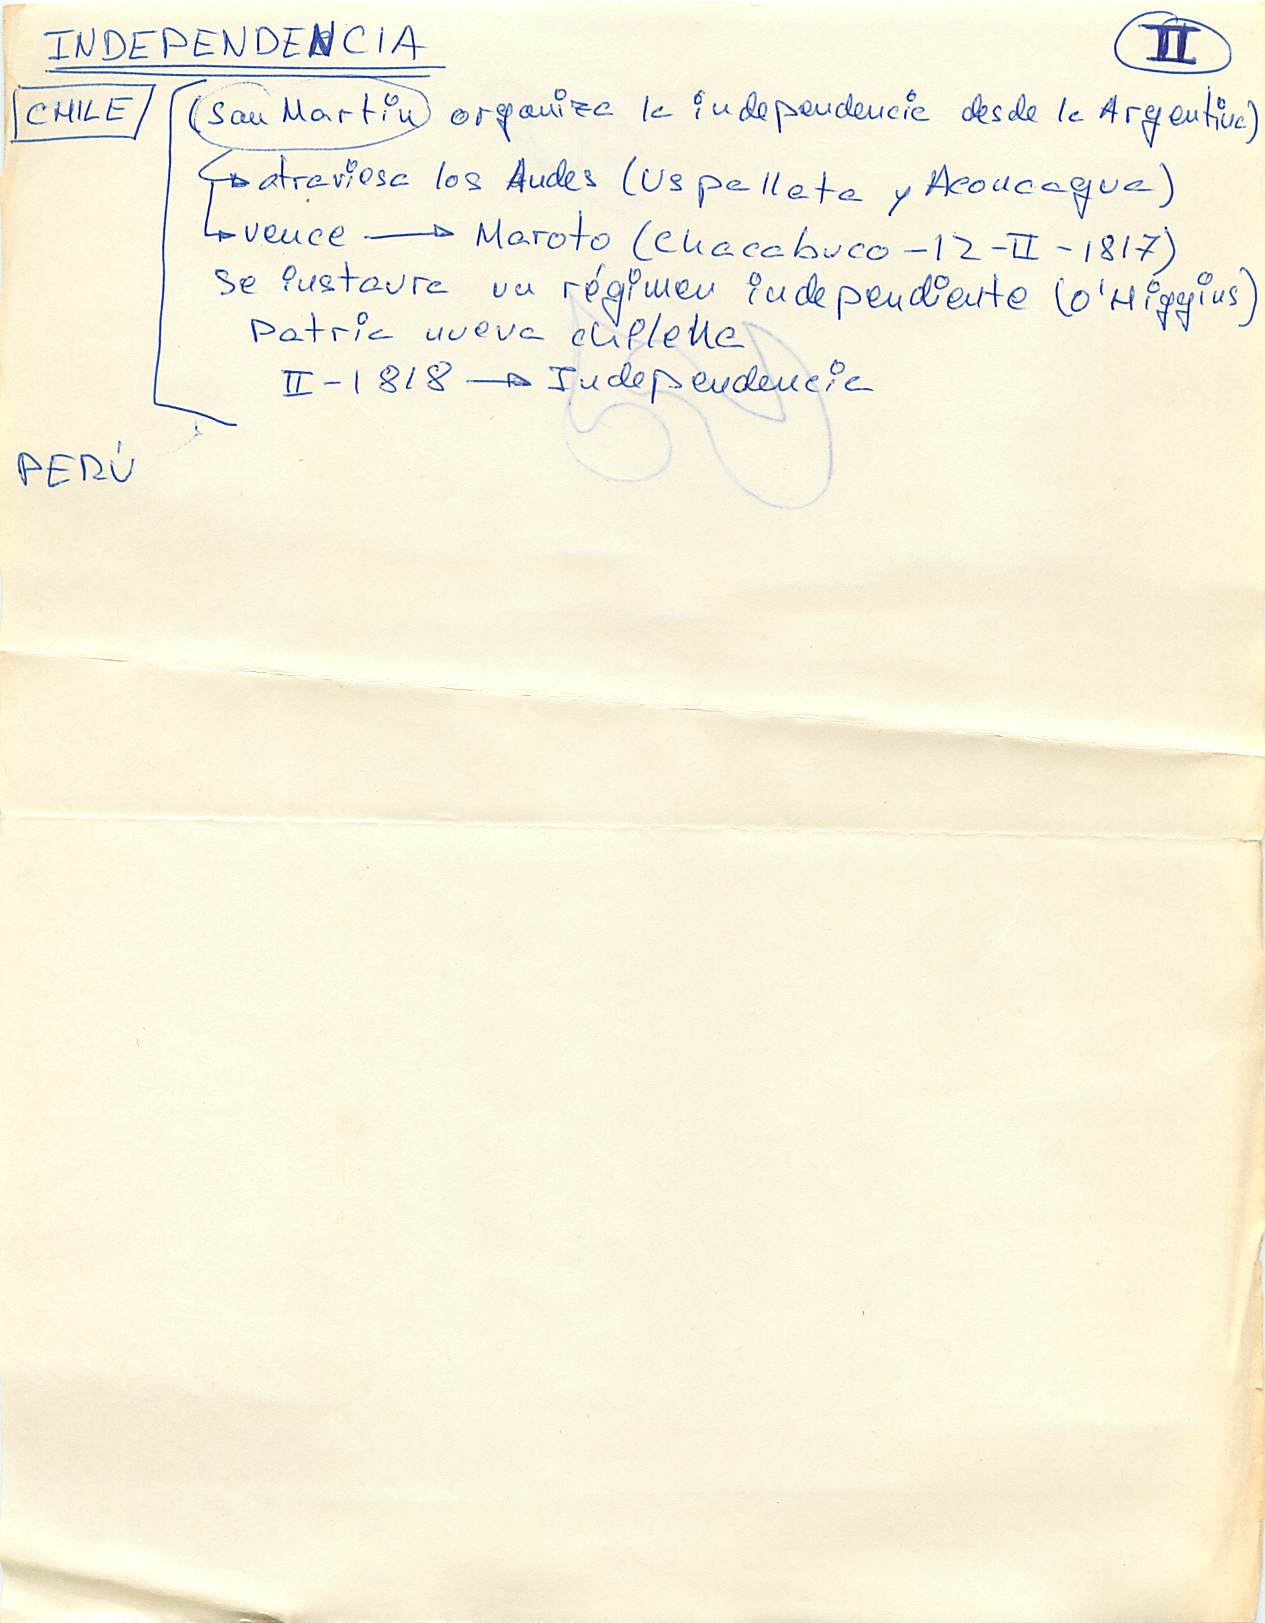 INDEPENDENCIA
II
CHILE (San Martin) organiza la independencia desde la Argentina)
atraviesa los Andes (Uspallata y Aconcagua)
vence → Maroto (Chacabuco - 12 - II - 1817)
se instaura un régimen independiente (O'Higgins)
Patria nueva chilena
II - 1818 → Independencia
PERÚ